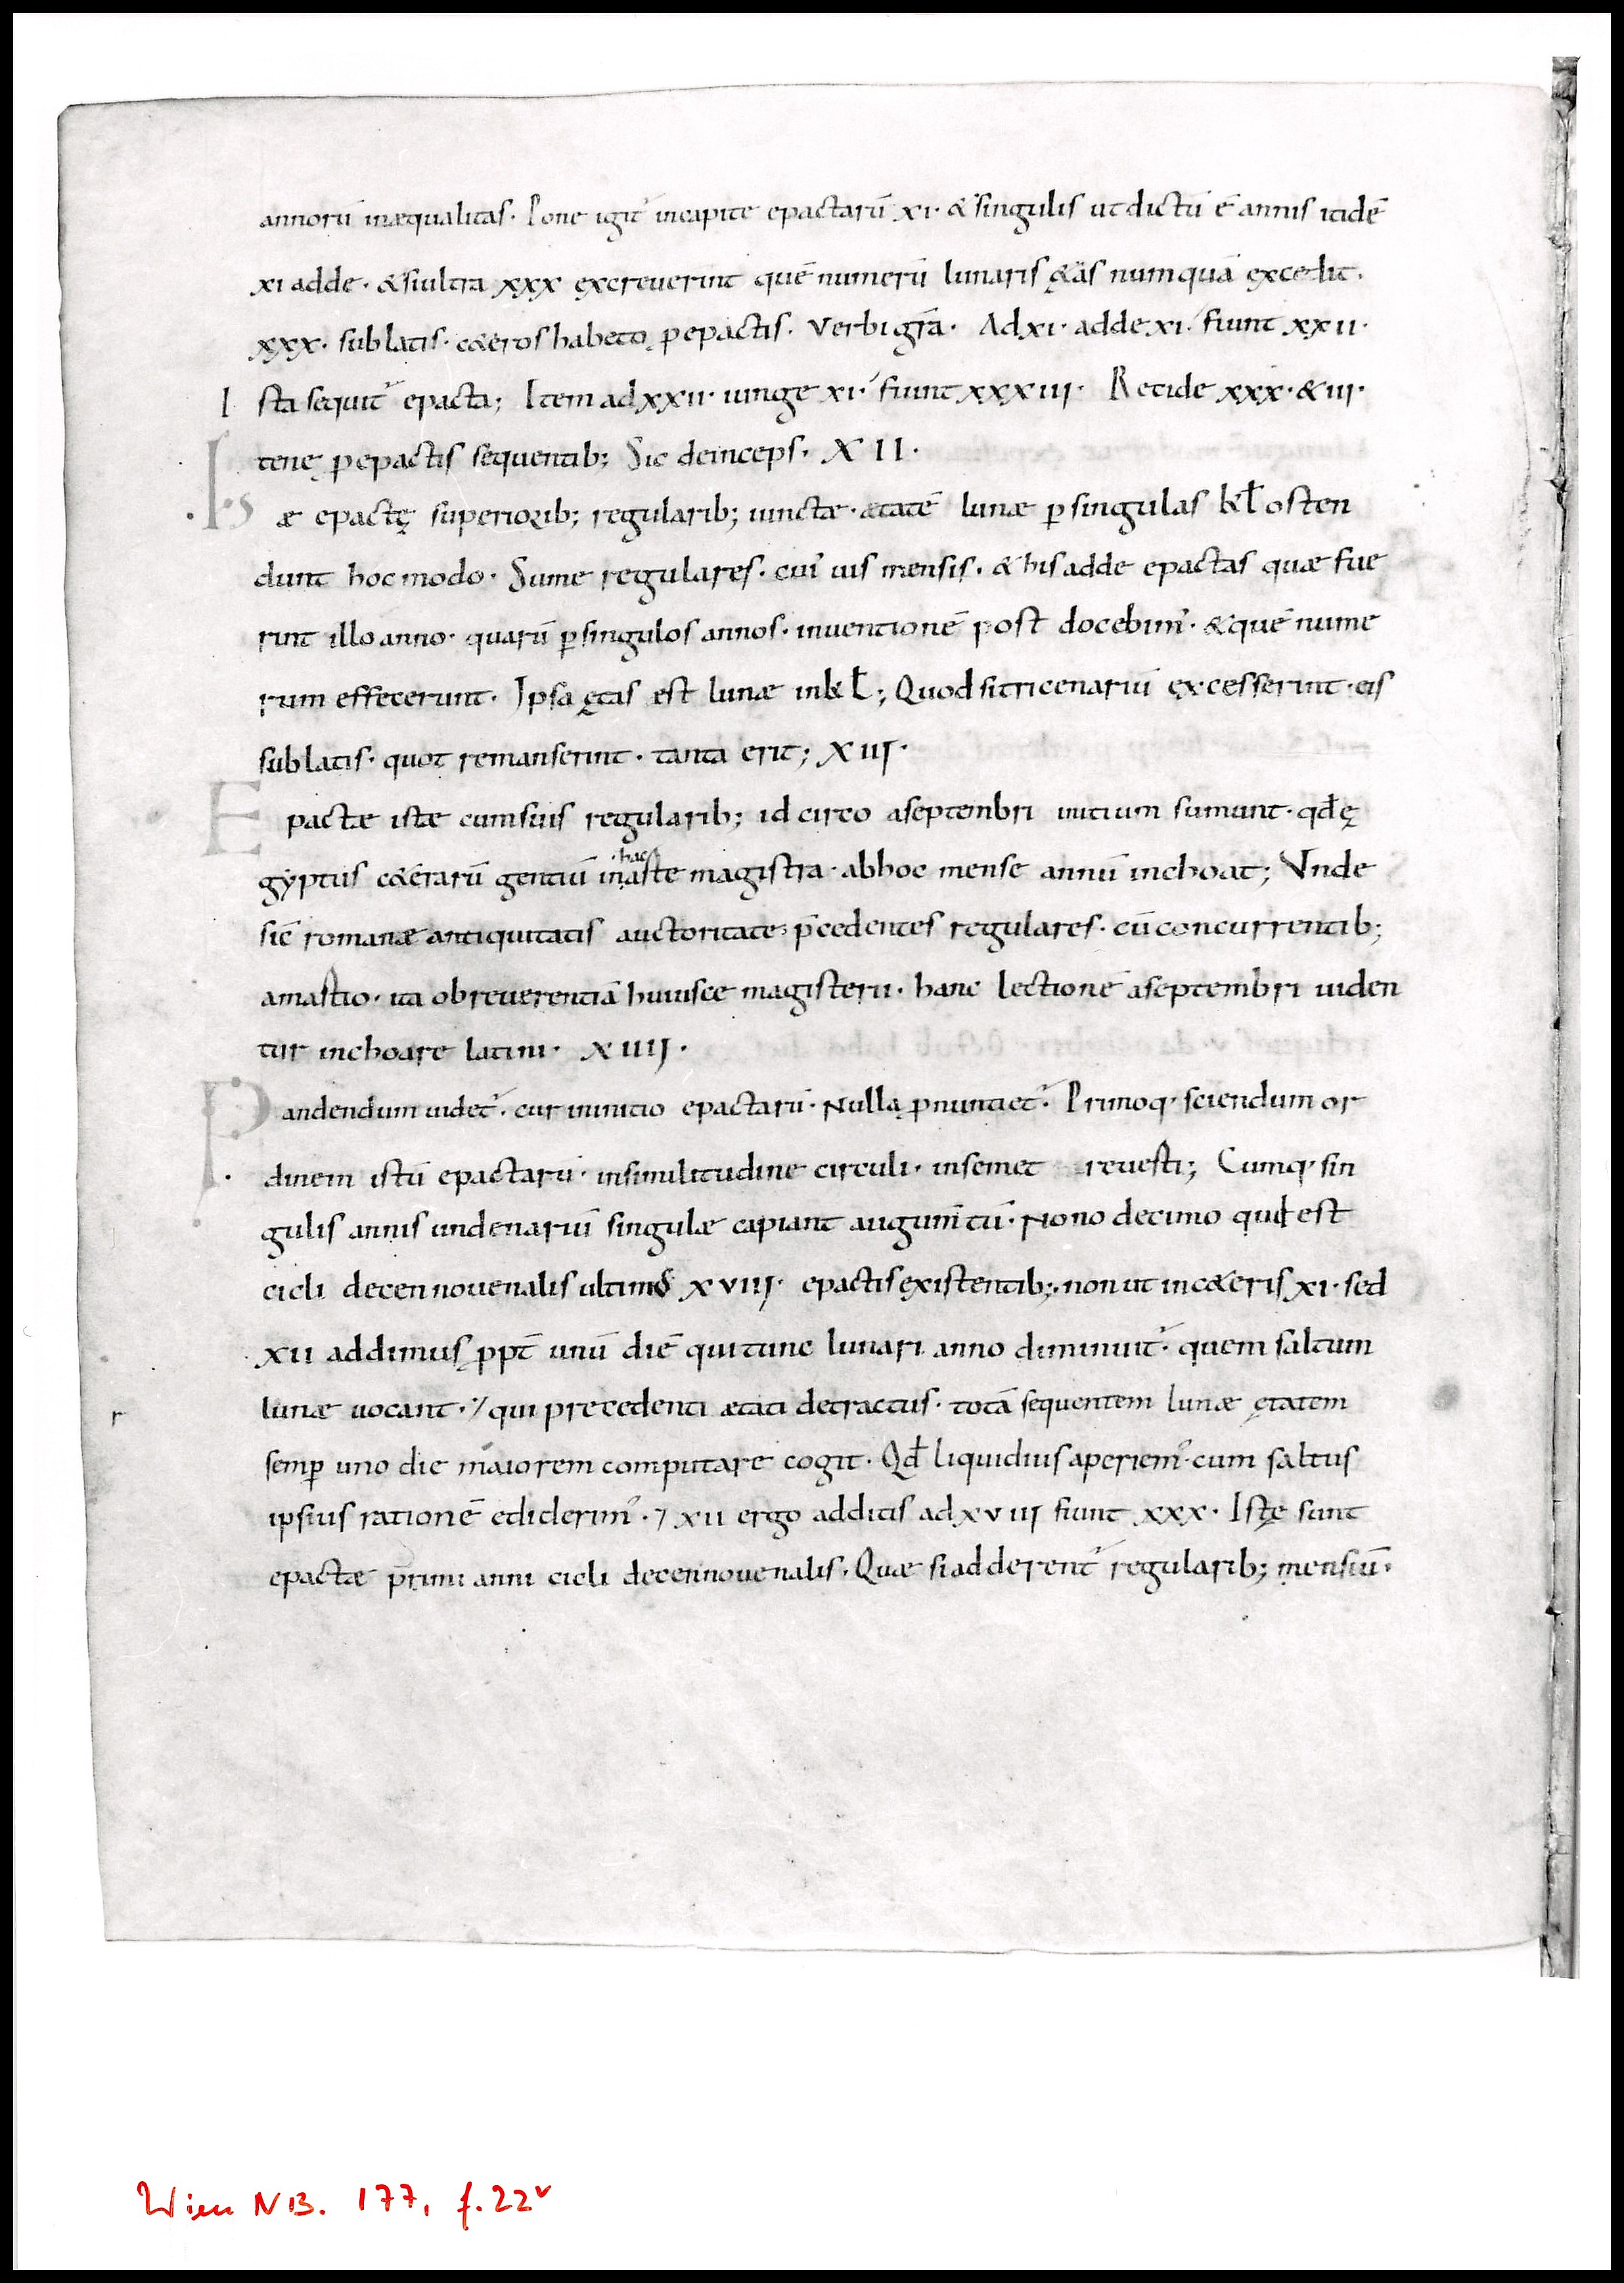 annorū inæqualitas. Pone igit̃ incapite epactarū xi. & singulis ut dictū ē annis itidē
xi adde. & siultra xxx excreuerint quē numerū lunaris ę&as numquā excedit.
xxx. sublatis. c&eros habeto p epactis. Verbi gr̄a. Ad xi. adde xi. fiunt xxii.
I sta sequit̃ epacta; Item adxxii. iunge xi. fiunt xxxiii. Recide xxx. & iii.
tene p epactis sequentib; Sic deinceps. XII.
æ epactę superiorib; regularib; iunctæ. ætatē lunæ p singulas kł osten
dunt hoc modo. Sume regulares. cui' uis mensis. & his adde epactas quæ fue
rint illo anno. quarū p singulos annos. inuentionē post docebim'. & quē nume
rum effecerunt. Ipsa ętas est lunæ inkł; Quod sitricenariū excesserint. eis
sublatis. quot remanserint. tanta erit; XIII.
E pactæ istæ cumsuis regularib; idcirco aseptembri initium sumunt. qđ ę
gyptus c&erarū gentiū in hac aste magistra. abhoc mense annū inchoat; Vnde
sic̄ romanæ antiquitatis auctoritate p̄cedentes regulares. cū concurrentib;
amastio. ita obreuerentiā huiusce magisterii. hanc lectionē aseptembri uiden
tur inchoare latini. XIIII.
P andendum uidet̃. cur ininitio epactarū. Nulla p nuntiet̃. Primoq. sciendum or
dinem istū epactarū. insimilitudine circuli. insemet reuesti; Cumq. sin
gulis annis undenariū singulæ capiant augum̄tū. Nono decimo quiđ est
cicli decennouenalis ultimus XVIII. epactis existentib;. non ut inc&eris xi. sed
XII addimus ppt̄ unū diē qui tunc lunari anno diminuit̃. quem saltum
lunæ uocant. ⁊ qui precedenti ætati detractus. totā sequentem lunæ ętatem
semp uno die maiorem computare cogit. Qđ liquidius aperiem'. cum saltus
ipsius rationē ediderim'. ⁊ xii ergo additis ad xviii fiunt xxx. Istę sunt
epactæ p̄rimi anni cicli decennouenalis. Quæ si adderent̃ regularib; mensiū.
Wien NB. 177, f. 22v